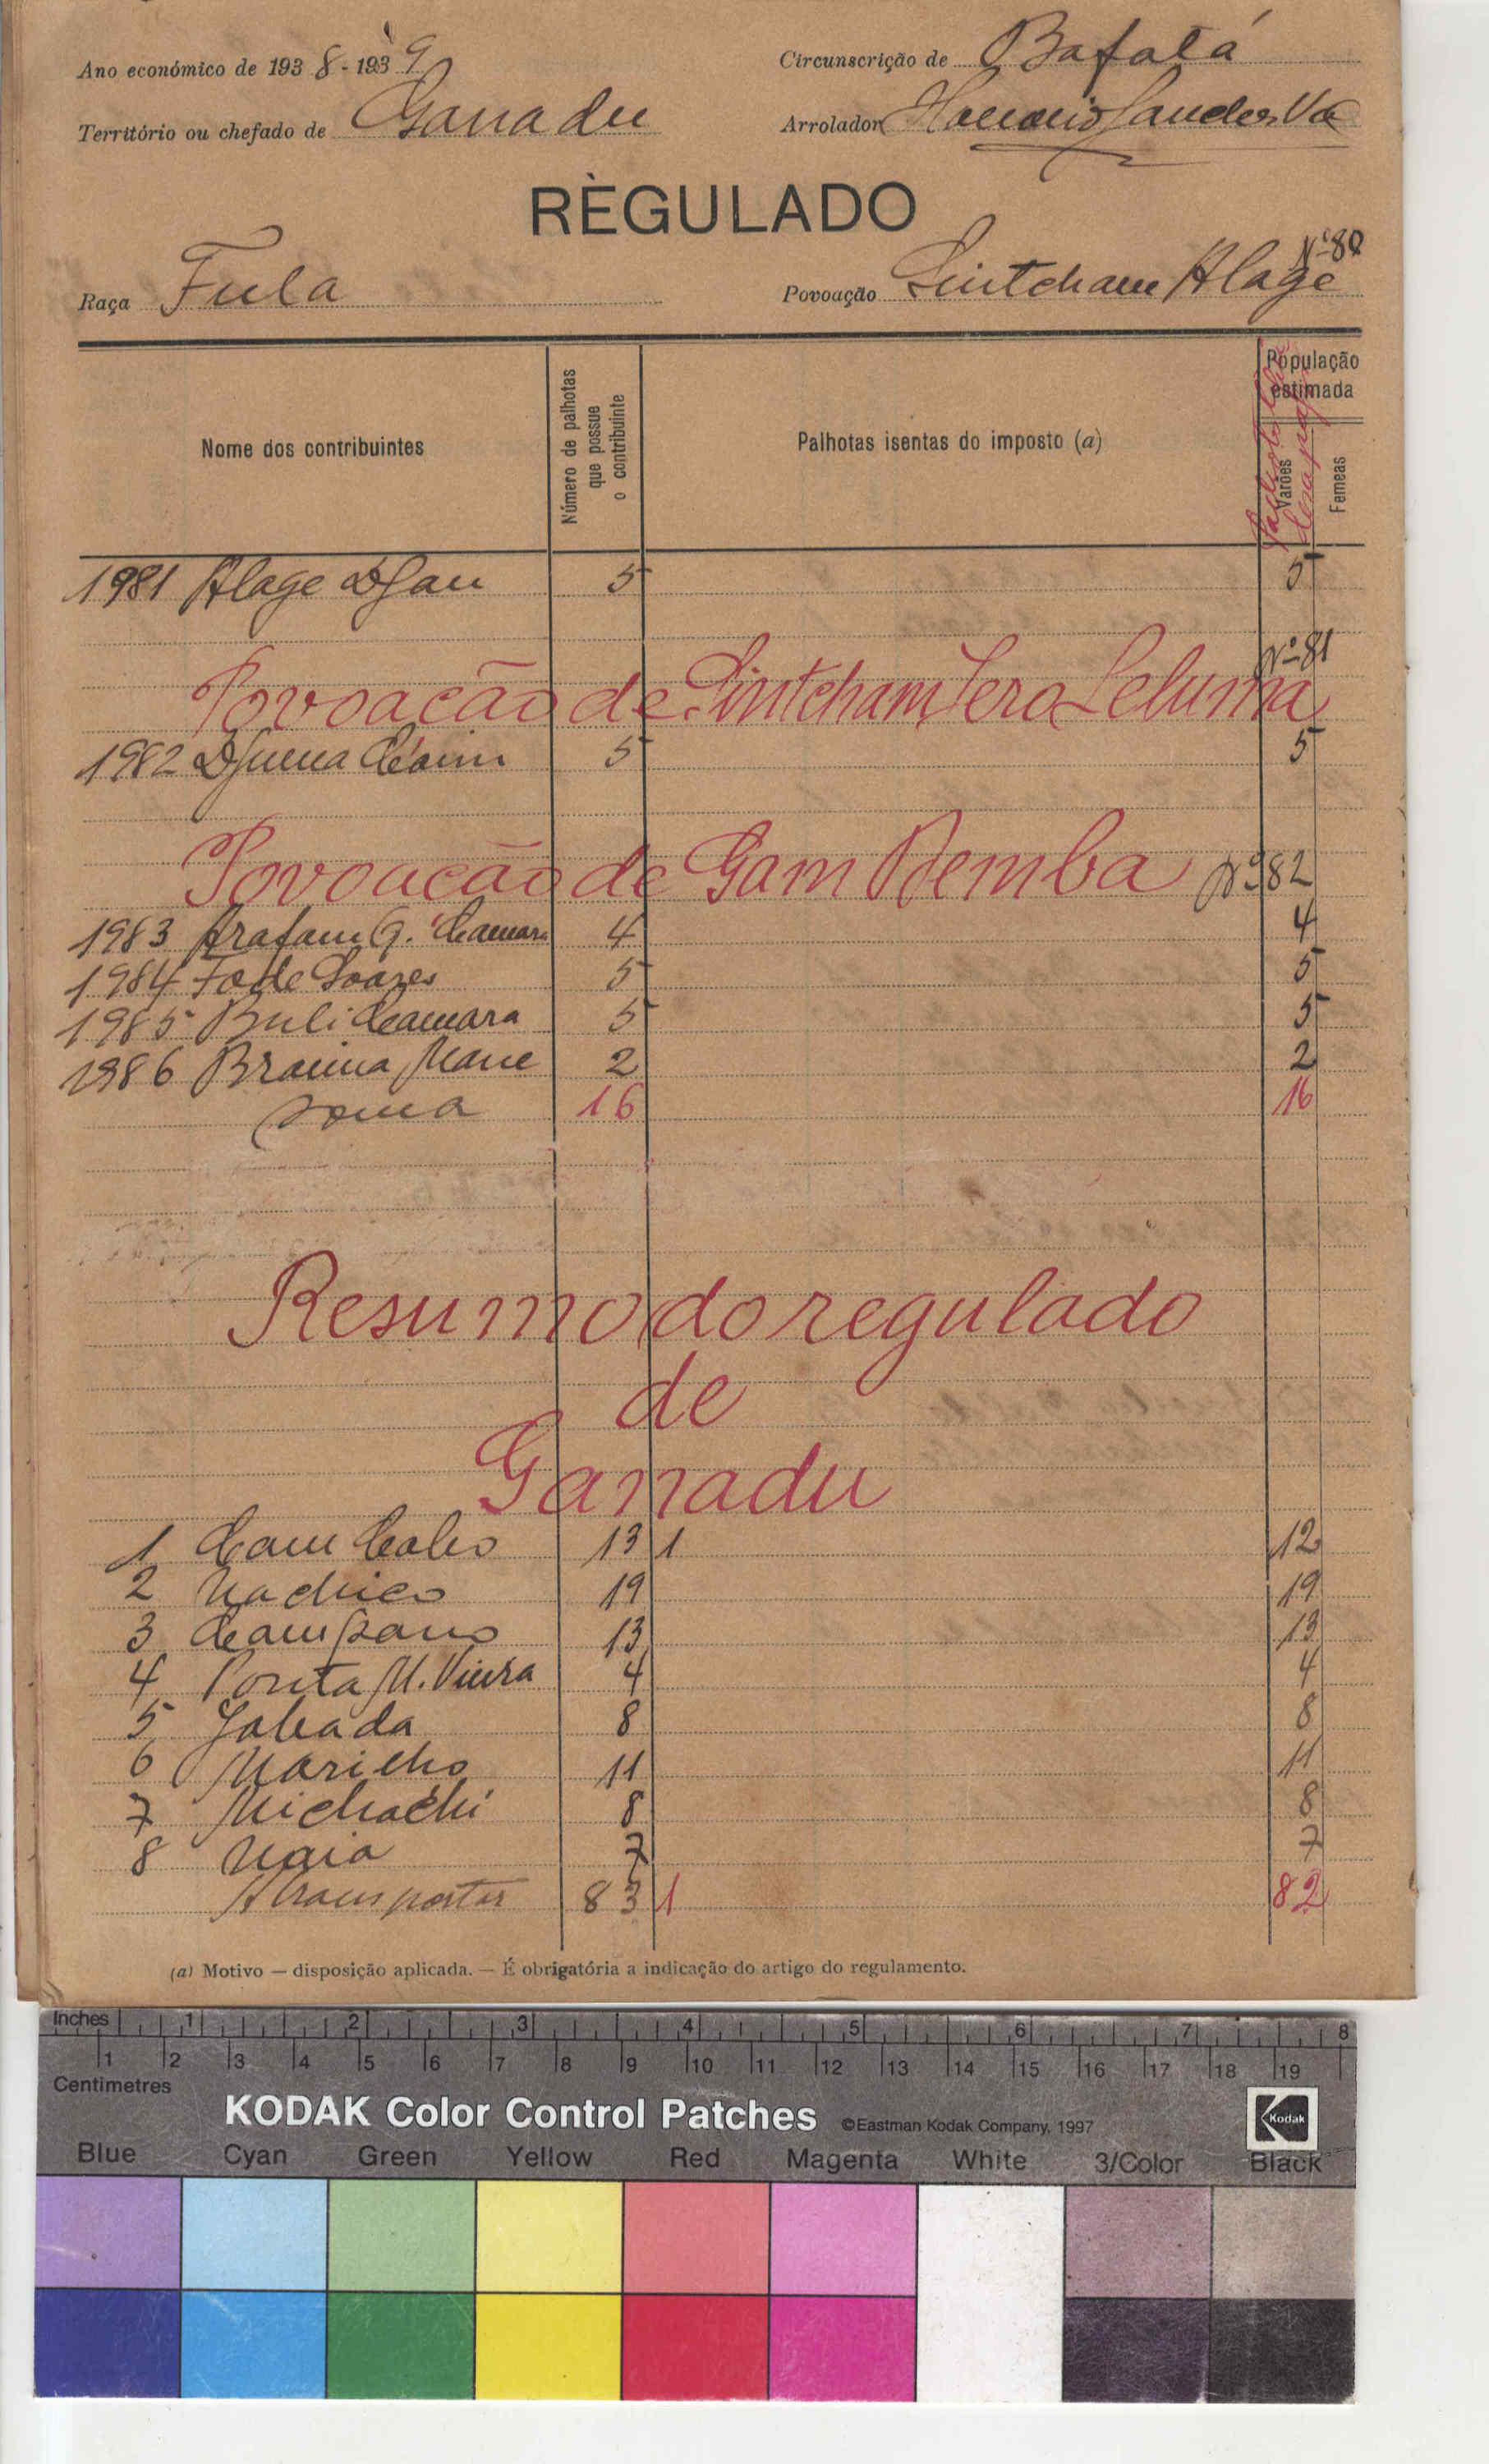 Ano económico de 1938-1939
Circunscrição de Bafatá
Território ou chefado de Ganadu
Arrolador
RÈGULADO
Nº 80
Raça Fula
Povoação Sintcham Alage
Nome dos contribuintes
Número de palhotas que possue o contribuinte
Palhotas isentas do imposto (a)
População estimada
Varões
Femeas
1981 Alage Djau 5 5
Povoacão de Sintcham Nº 81
1982 Djuma 5 5
Povoacão de Gam Bemba Nº 82
1983 Arafam G. Camara 4 4
1984 Fode Soares 5 5
1985 Buli Camara 5 5
1986 Braima Mane 2 2
Soma 16 16
Resumo do regulado
de
Ganadu
1 13 1 12
2 19 19
3 13 13
4 Ponta M. Vieira 4 4
5 Jabada 8 8
6 11 11
7 8 8
8 7 7
A transportar 83 1 82
(a) Motivo — disposição aplicada. — É obrigatória a indicação do artigo do regulamento.
Inches 1 2 3 4 5 6 7 8
1 2 3 4 5 6 7 8 9 10 11 12 13 14 15 16 17 18 19
Centimetres
KODAK Color Control Patches ©Eastman Kodak Company, 1997 Kodak
Blue Cyan Green Yellow Red Magenta White 3/Color Black